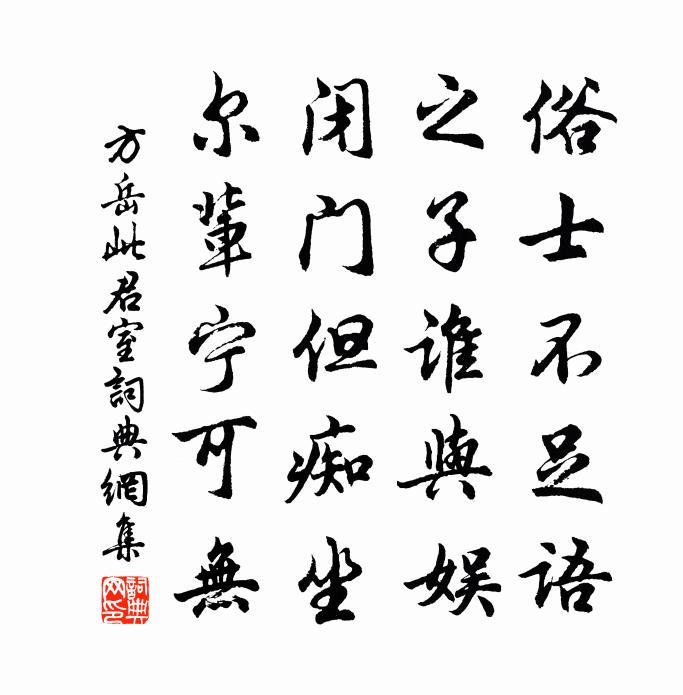 俗士不足语
之子谁與娱
闭门但痴坐
尔輩宁可無
方岳此君室詞典網集
詞典网印